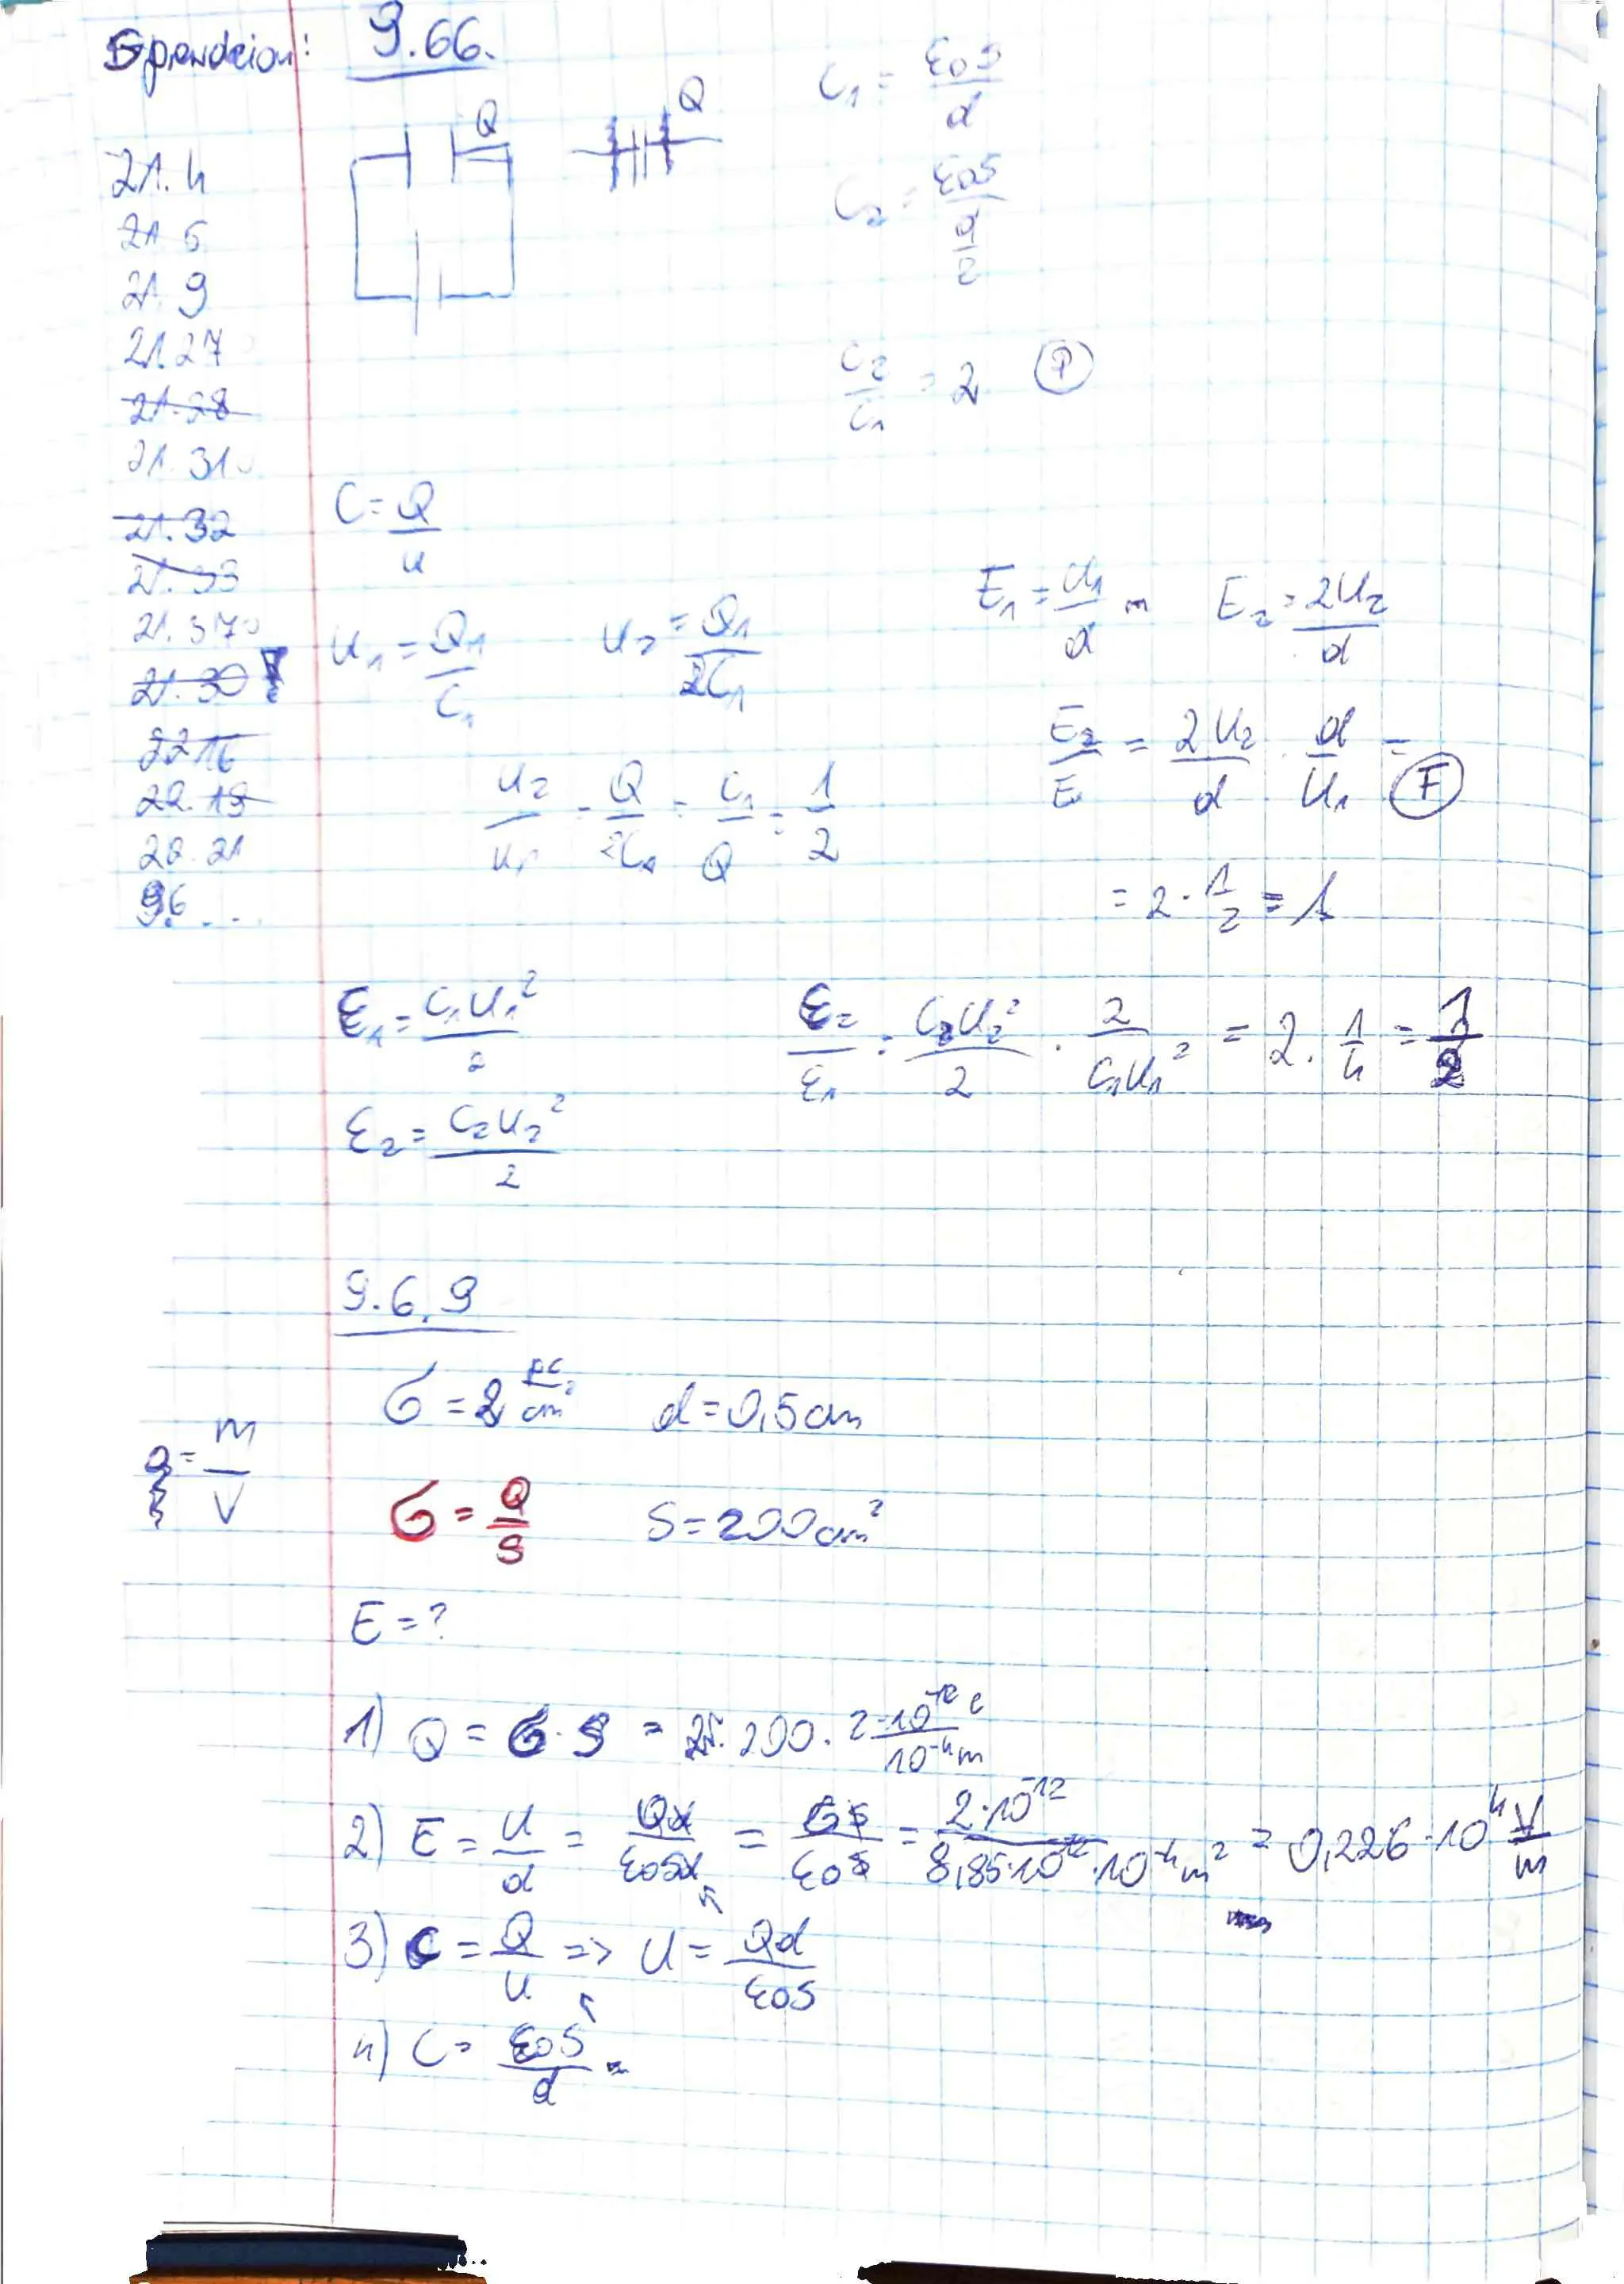 Sprawdzian:
21.4
21.5
21.9
21.27
21.28
21.31
21.32
21.33
21.37
21.30
22.16
22.19
22.21
9.6...
9.66.
Q
Q
C₁ = ε₀S/d
C₂ = ε₀S/(d/2)
C₂/C₁ = 2 (P)
C = Q/U
U₁ = Q₁/C₁ U₂ = Q₁/2C₁
E₁ = U₁/d E₂ = 2U₂/d
U₂/U₁ = Q/2C₁ = C₁/Q = 1/2
E₂/E = 2U₂/d · d/U₁ = (F)
= 2 · 1/2 = 1
ε₁ = C₁U₁²/2
ε₂/ε₁ = C₂U₂²/2 · 2/C₁U₁² = 2 · 1/4 = 1/2
ε₂ = C₂U₂²/2
9.6.9
σ = 2 pC/cm² d = 0,5cm
ρ = m/V
σ = Q/S S = 200cm²
E = ?
1) Q = σ · S = 200 · 2·10⁻¹² C/10⁻⁴m
2) E = U/d = Qd/ε₀Sd = σS/ε₀S = 2·10⁻¹²/8,85·10⁻¹²·10⁻⁴m² = 0,226·10⁴ V/m
3) C = Q/U => U = Qd/ε₀S
4) C = ε₀S/d =